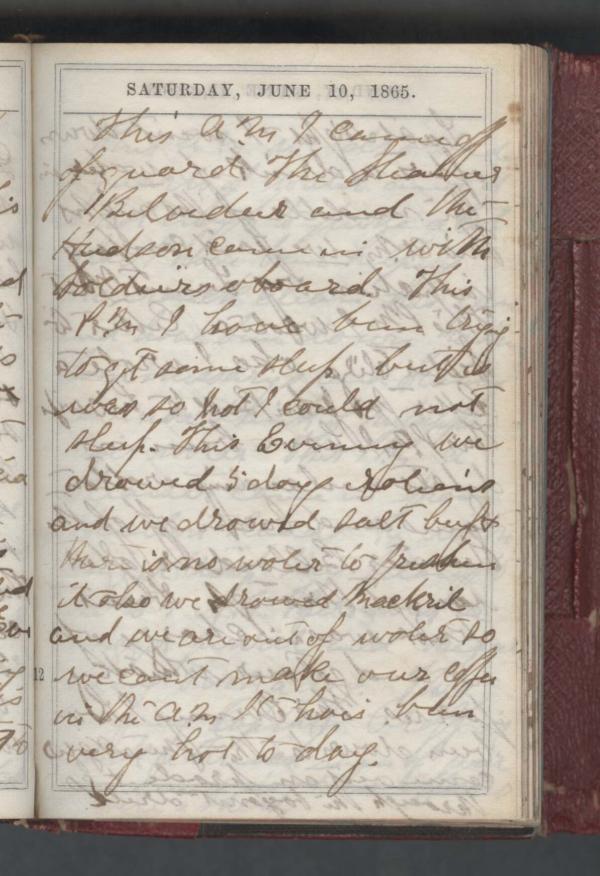 SATURDAY, JUNE 10, 1865.
This A.M I came off
of guard. The Steamer
Belvedeer and the
Hudson came in with
soldiers aboard This
P.M I have bin trying
to get some sleep but it
was so hot I could not
sleep. This Evening we
drawed 5 days rations
and we drawed salt beef &
there is no water to freshen
it also we drawed Mackril
and we are out of water so
we cant make our coffee
in the A.M It has bin
very hot to day.
12